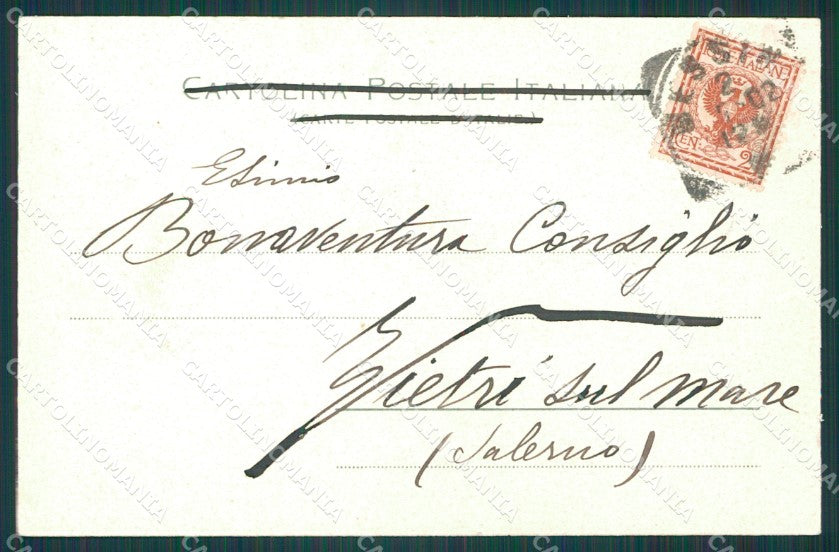 CARTOLINA POSTALE ITALIANA
(CARTE POSTALE D'ITALIE)
Esimio
Bonaventura Consiglio
Vietri sul mare
(Salerno)
CARTOLINOMANIA